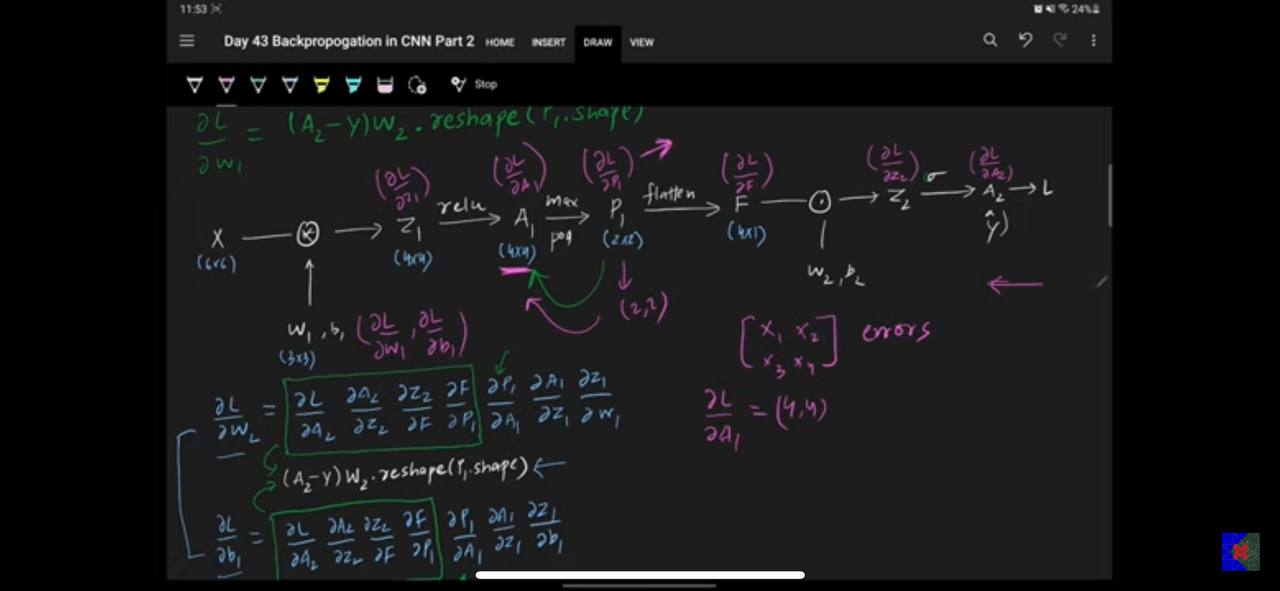 11:53 24%
Day 43 Backpropogation in CNN Part 2 HOME INSERT DRAW VIEW
Stop
∂L/∂W₁ = (A₂-Y)W₂.reshape(P₁.shape)
(∂L/∂Z₁) (∂L/∂A₁) (∂L/∂P₁) (∂L/∂F) (∂L/∂Z₂) (∂L/∂A₂)
X → Z₁ relu → A₁ max → P₁ flatten → F → Z₂ σ → A₂ → L
(6x6) (4x4) (4x4) (2x2) (4x1) ŷ)
W₂, b₂
(2,2)
W₁, b₁ (∂L/∂W₁, ∂L/∂b₁)
(3x3)
[x₁ x₂ errors
x₃ x₄]
∂L/∂W₂ = ∂L/∂A₂ ∂A₂/∂Z₂ ∂Z₂/∂F ∂F/∂P₁ ∂P₁/∂A₁ ∂A₁/∂Z₁ ∂Z₁/∂W₁
∂L/∂A₁ = (4,4)
(A₂-Y)W₂.reshape(P₁.shape) ←
∂L/∂b₁ = ∂L/∂A₂ ∂A₂/∂Z₂ ∂Z₂/∂F ∂F/∂P₁ ∂P₁/∂A₁ ∂A₁/∂Z₁ ∂Z₁/∂b₁